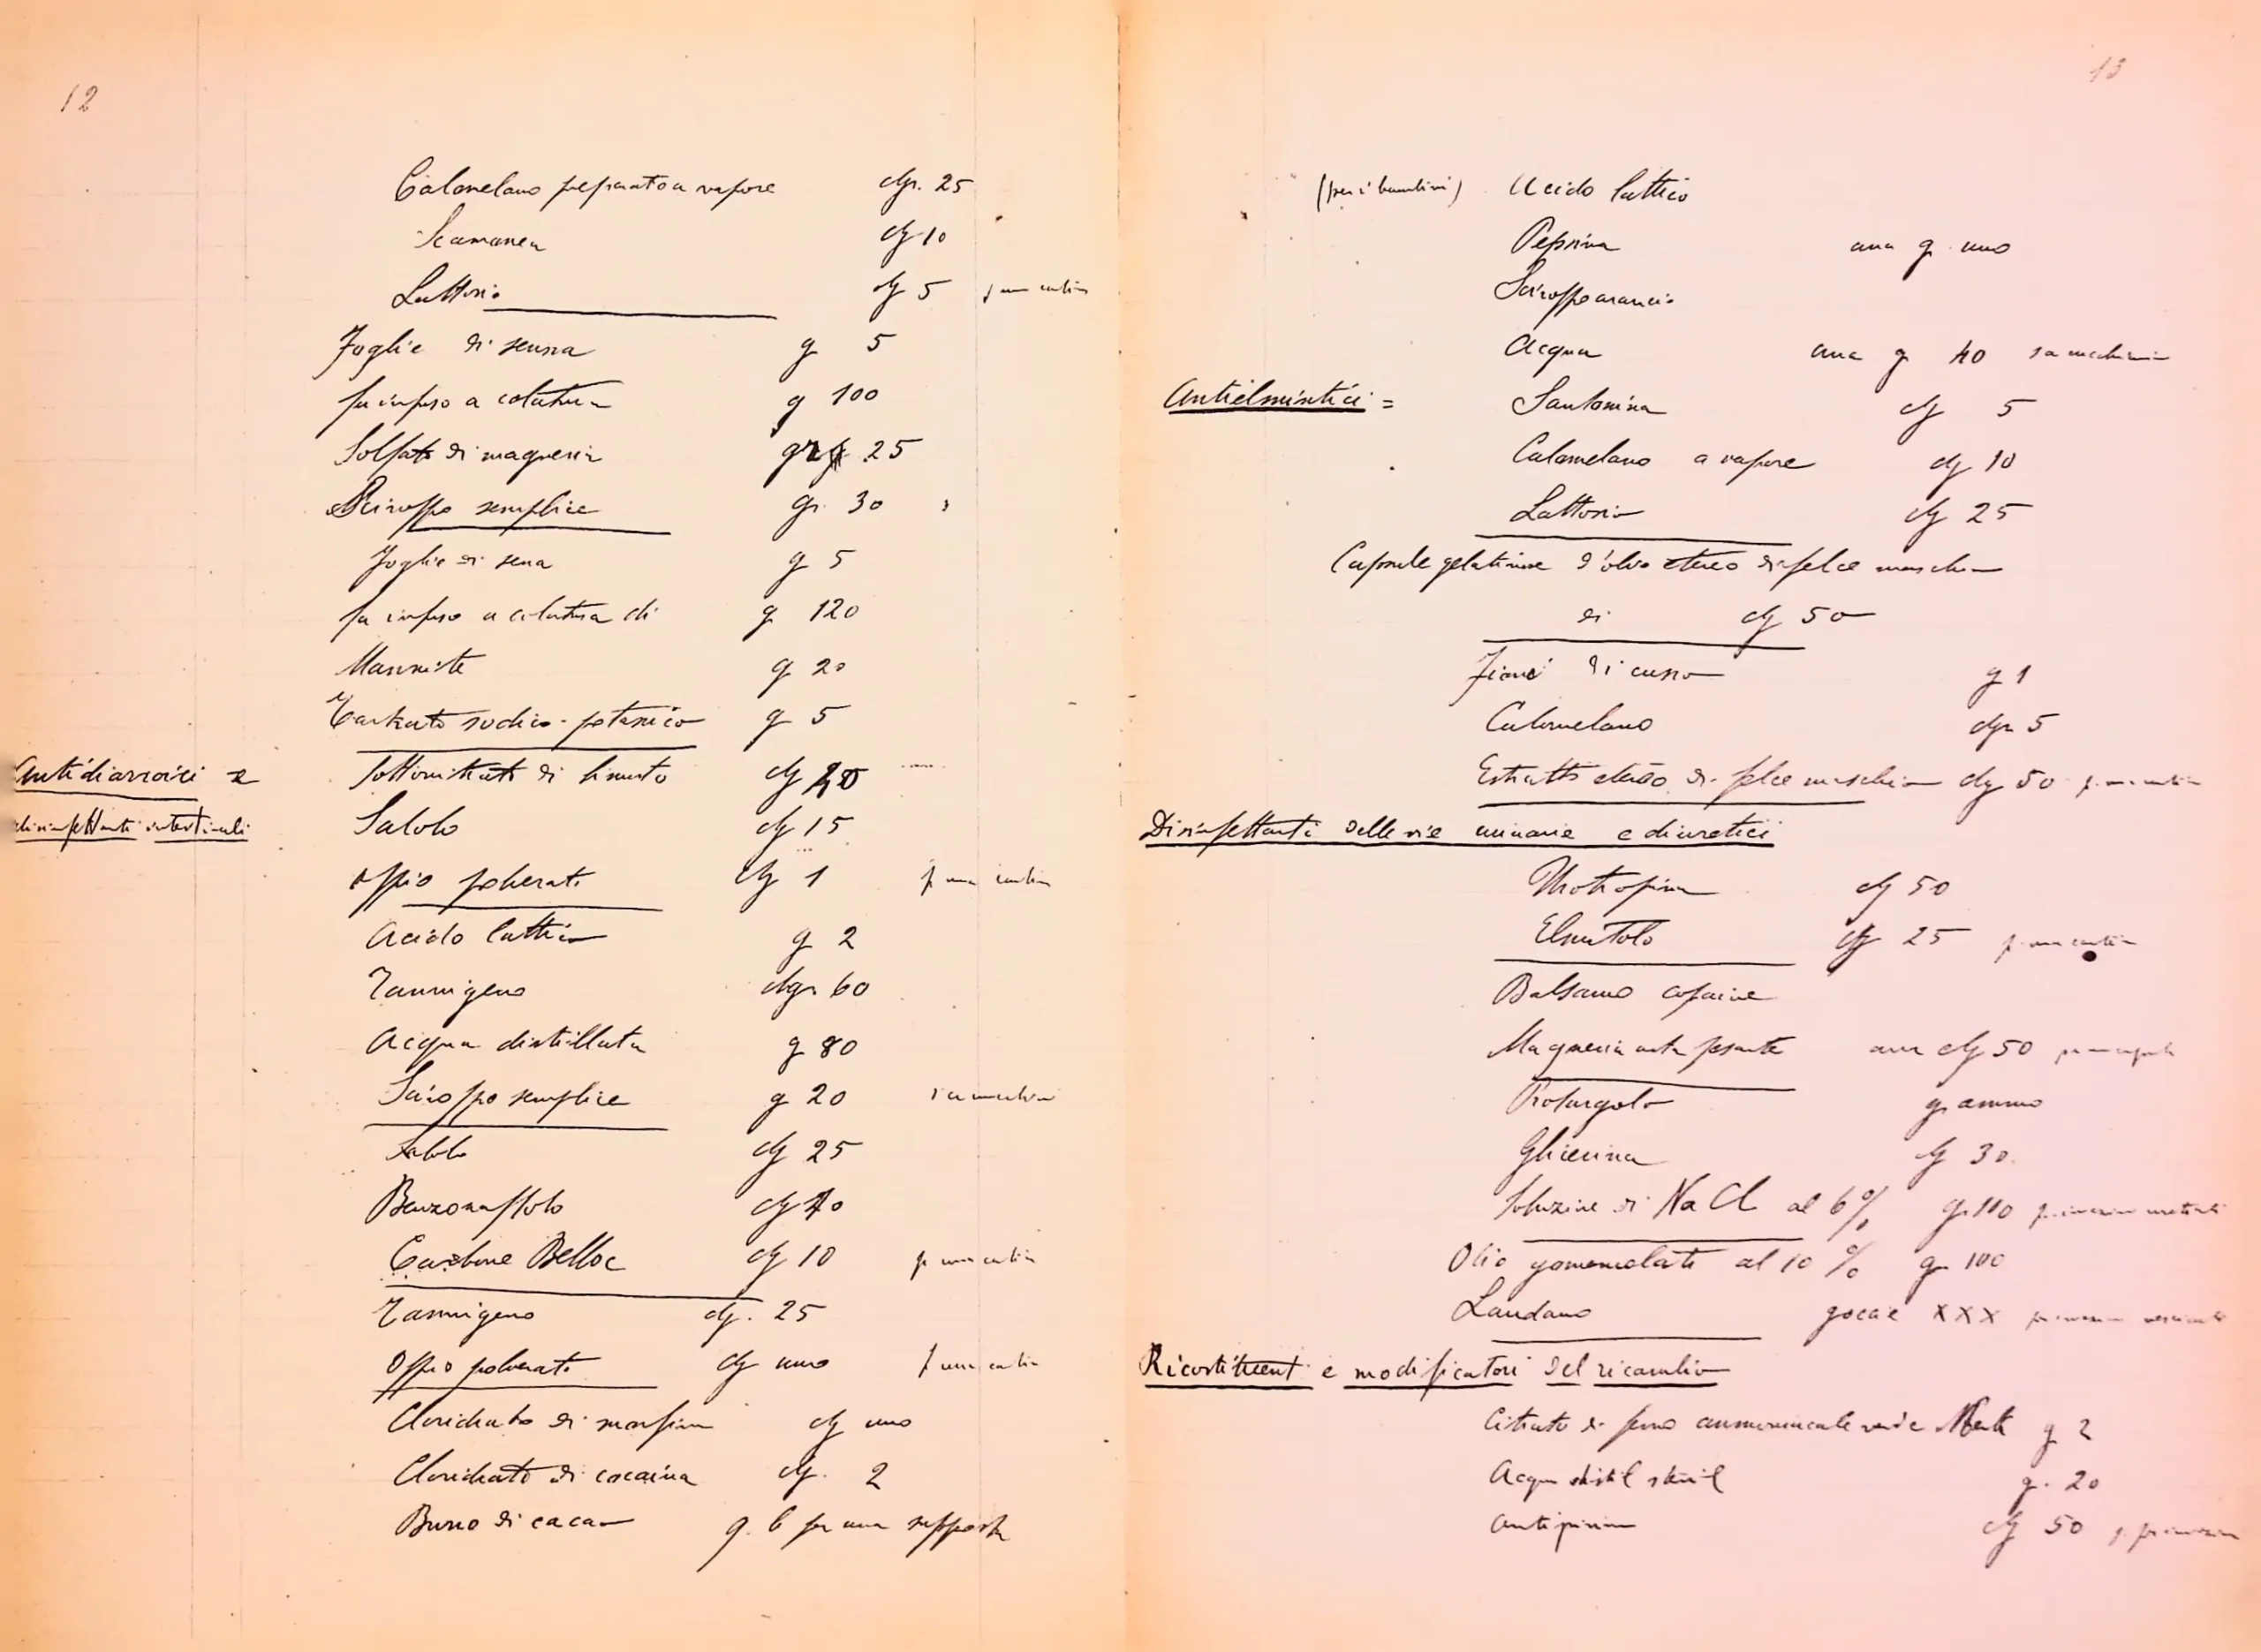 12
Calomelano preparato a vapore cgr. 25
Scamonea cg 10
Lattosio cg 5 p una cartina
Foglie di senna g 5
fa infuso a colatura g 100
Solfato di magnesia gr 25
Sciroppo semplice gr. 30
Foglie di sena g 5
fa infuso a colatura di g 120
Mannite g 20
Tartrato sodico-potassico g 5
Antidiarroici e
disinfettanti intestinali
Sottonitrato di bismuto cg
Salolo cg 15
Oppio polverato cg 1 p una cartina
Acido lattico g 2
Tannigeno cgr 60
Acqua distillata g 80
Sciroppo semplice g 20
Salolo cg 25
Benzonaftolo cg
Carbone Belloc cg 10 p una cartina
Tannigeno cg. 25
Oppio polverato cg uno p una cartina
Cloridrato di morfina cg uno
Cloridrato di cocaina cg. 2
Burro di cacao q. b per una supposta
13
(per i bambini) Acido lattico
Pepsina ana g uno
Sciroppo arancio
Acqua ana g 40
Antielmintici = Santonina cg 5
Calomelano a vapore cg 10
Lattosio cg 25
Capsule gelatinose d'olio etereo di felce maschio
di cg 50
Fiori di cusso g 1
Calomelano cgr 5
Estratto etereo di felce maschio cg 50 p una cartina
Disinfettanti delle vie urinarie e diuretici
Urotropina cg 50
Elmitolo cg 25 p una cartina
Balsamo copaive
Magnesia usta pesante ana cg 50
Protargolo grammo
Glicerina g 30
Soluzione di NaCl al 6% g.
Olio gomenolato al 10% g 100
Laudano gocce XXX
Ricostituenti e modificatori del ricambio
Citrato di ferro ammoniacale verde Merk g 2
Acqua distil steril g. 20
Antipirina cg 50